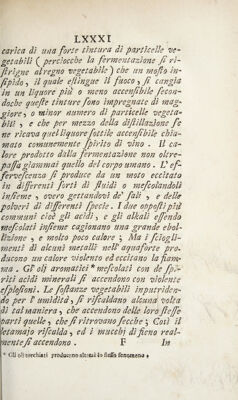 LXXXI
carica di una forte tintura di particelle ve-
getabili ( perciocchè la fermentazione si ri-
strigne al regno vegetabile) che un mosto in-
sipido, il quale estingue il fuoco, si cangia
in un liquore più o meno accensibile secon-
dochè queste tinture sono impregnate di mag-
giore, o minor numero di particelle vegeta-
bili, e che per mezzo della distillazione se
ne ricava quel liquore sottile accensibile chia-
mato comunemente spirito di vino. Il ca-
lore prodotto dalla fermentazione non oltre-
passa giammai quello del corpo umano. L'ef-
fervescenza si produce da un moto eccitato
in differenti sorti di fluidi o mescolandoli
insieme, ovvero gettandovi de' sali, e delle
polveri di differenti spezie. I due opposti più
communi cioè gli acidi, e gli alkali essendo
mescolati insieme cagionano una grande ebol-
lizione, e molto poco calore; Ma i scioglì-
menti di alcuni metalli nell'aquaforte pro-
ducono un calore violento ed eccitano la fiam-
ma. Gl' olj aromatici * mescolati con de spi-
riti acidi minerali si accendono con violente
esplosioni. Le sostanze vegetabili inputriden-
do per l'umidità, si riscaldano alcuna volta
di tal maniera, che accendono delle loro stesse
parti quelle, che si ritrovano secche; Così il
letamajo riscalda, ed i mucchj di fieno real-
mente si accendono. F In
* Gli olj torchiati producono altresì lo stesso fenomeno.